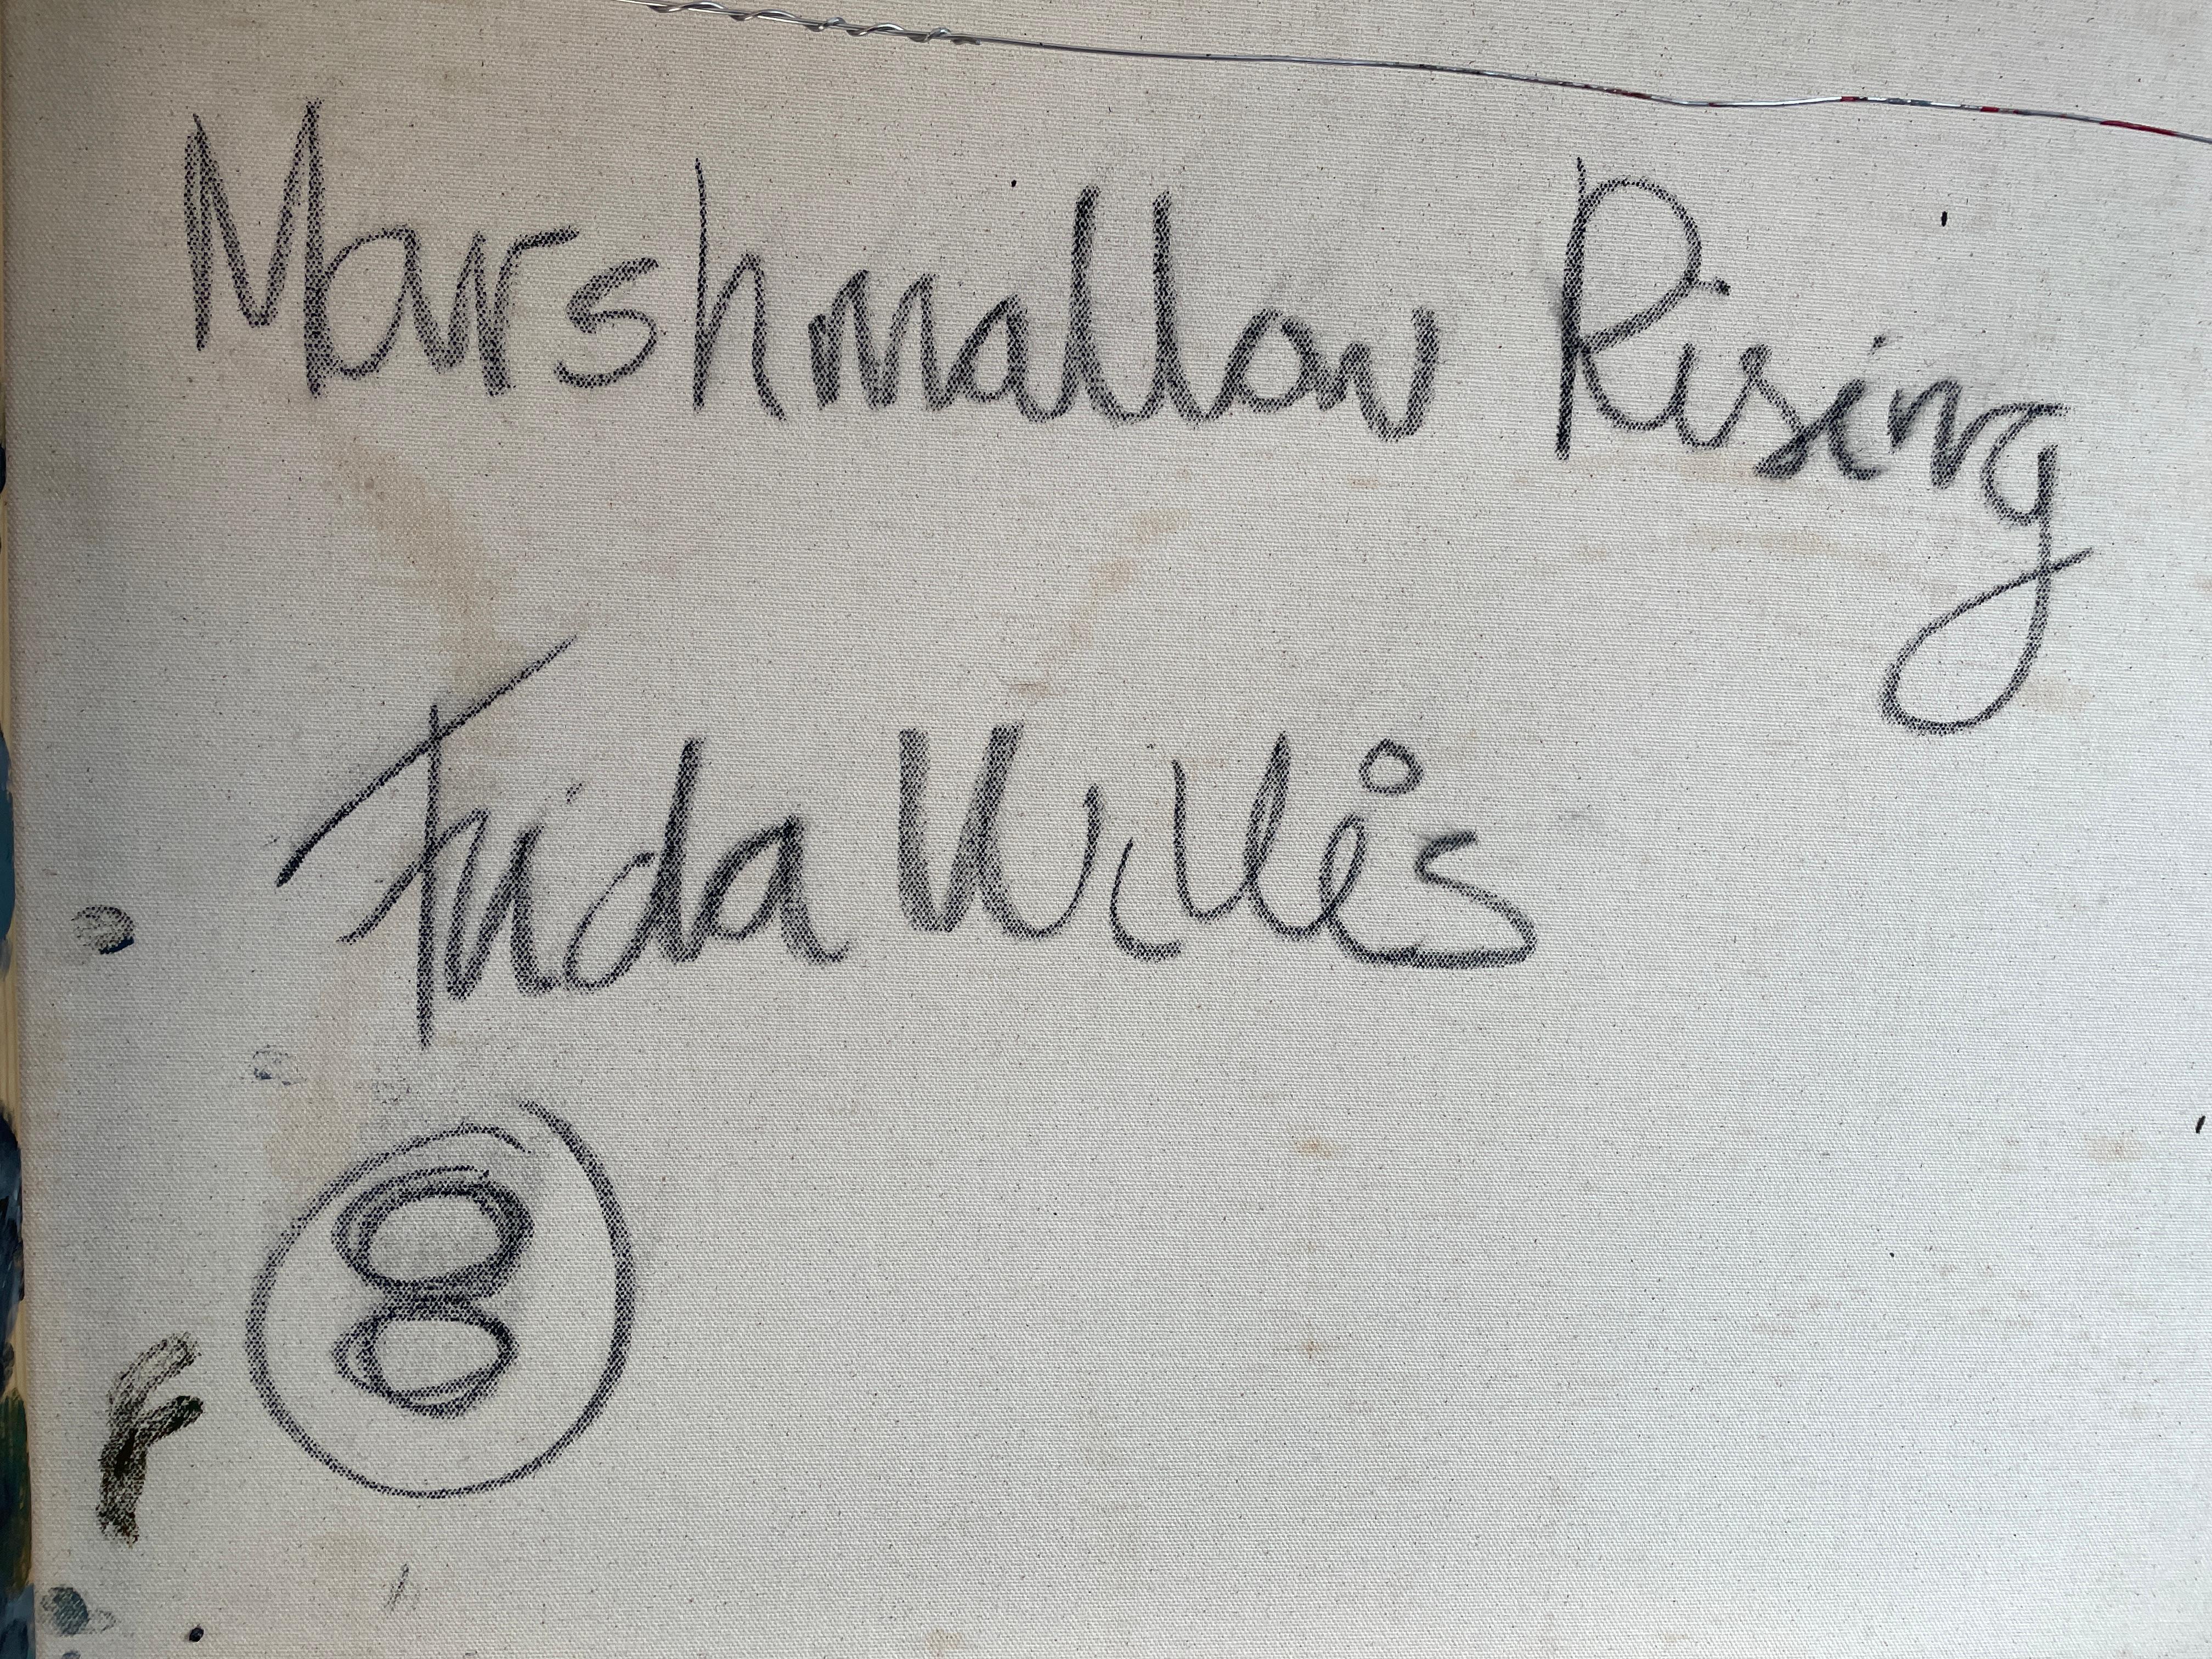 Marshmallow Rising
Frida Willis
8
F